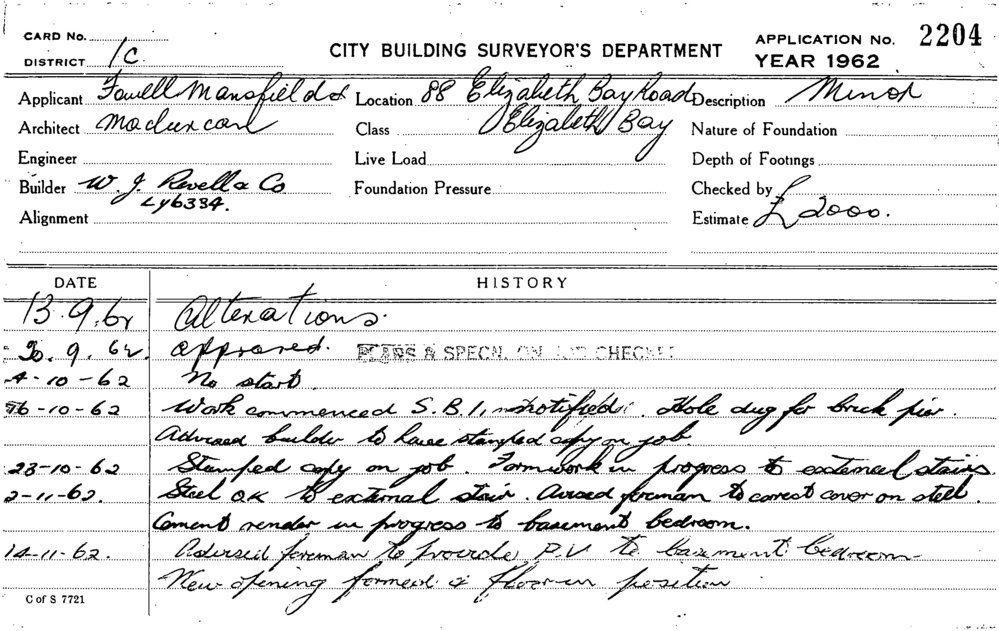 CARD No.
DISTRICT 1C
CITY BUILDING SURVEYOR'S DEPARTMENT
APPLICATION No. 2204
YEAR 1962
Applicant Fowell Mansfield &
Location 88 Elizabeth Bay Road
Description Minor
Architect Maclurcan
Class Elizabeth Bay
Nature of Foundation
Engineer
Live Load
Depth of Footings
Builder W. J. Revell & Co
LY6334.
Foundation Pressure
Checked by
Alignment
Estimate £2000.
DATE HISTORY
13.9.62 Alterations.
20.9.62. approved. PLANS & SPECN. ON JOB CHECKED
4-10-62 No start.
16-10-62 Work commenced S.B.I. notified. Hole dug for brick pier.
Advised builder to have stamped copy on job
23-10-62 Stamped copy on job. Formwork in progress to external stairs.
2-11-62. Steel O.K to external stair. Avised foreman to correct cover on steel.
Cement render in progress to basement bedroom.
14-11-62. Advised foreman to provide P.V to basement bedroom
New opening formed & floor in position
C of S 7721